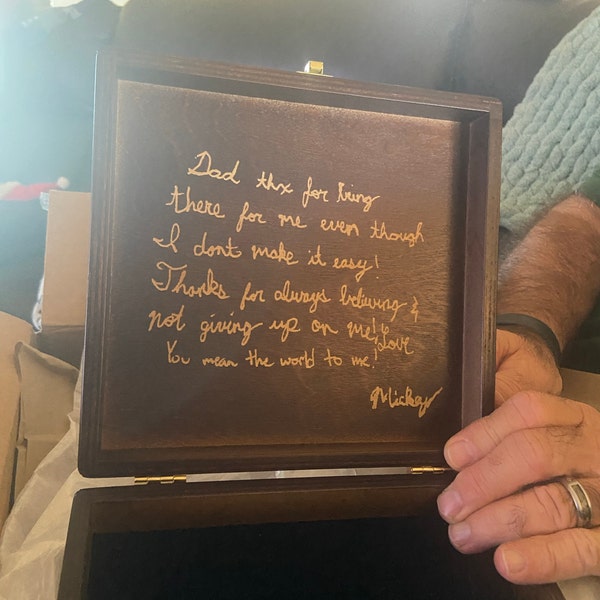 Dad thx for being
there for me even though
I dont make it easy!
Thanks for always believing &
not giving up on me! Love
You mean the world to me!
Mickey